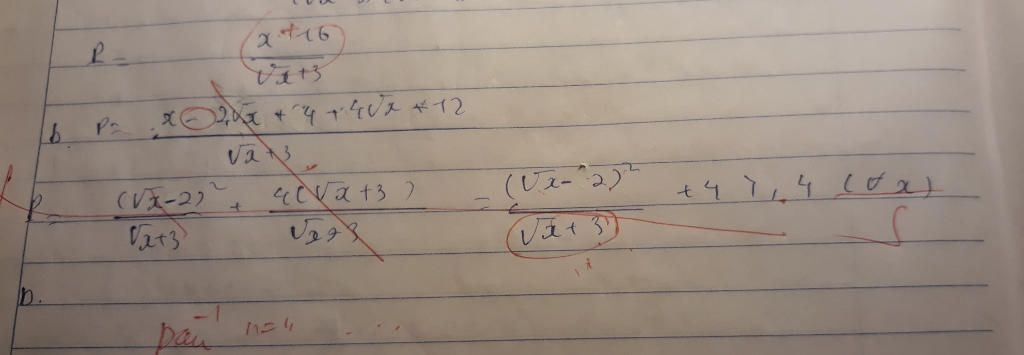 P = (x + 16)/(√x + 3)
b. P = (x - 2√x + 4 + 4√x + 12)/(√x + 3)
P = (√x - 2)²/(√x + 3) + 4(√x + 3)/(√x + 3) = (√x - 2)²/(√x + 3) + 4 ≥ 4 (∀x)
S
D.
n = 4 ....